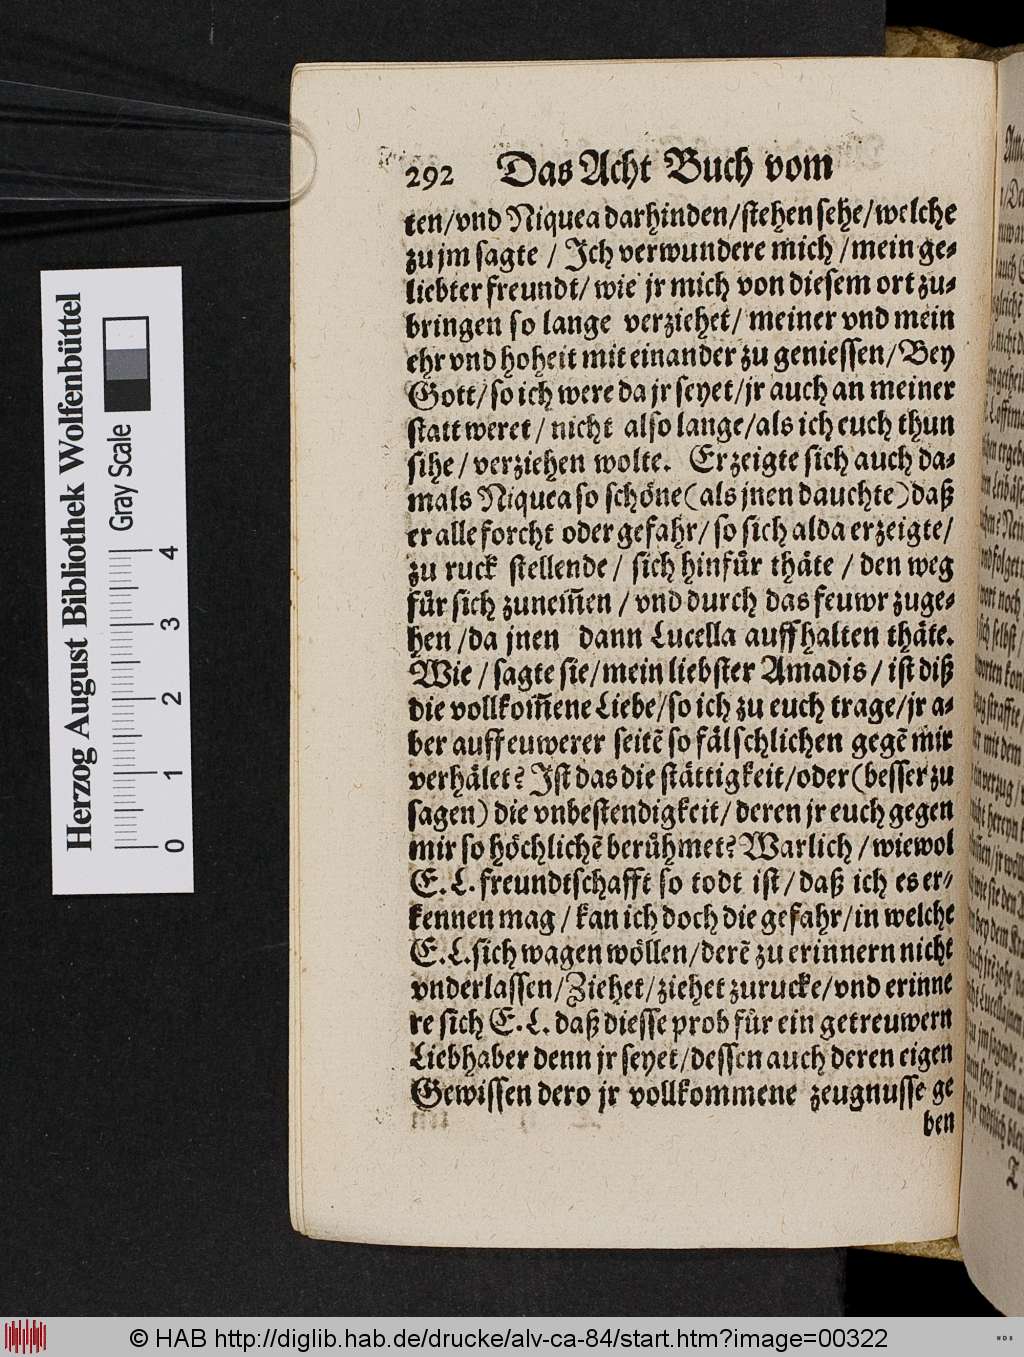 292 Das Acht Buch vom
ten/vnd Niquea darhinden/stehen sehe/welche
zu jm sagte / Jch verwundere mich / mein ge-
liebter freundt/ wie jr mich von diesem ort zu-
bringen so lange verziehet/ meiner vnd mein
ehr vnd hoheit mit einander zu geniessen/ Bey
Gott/ so ich were da jr seyet/jr auch an meiner
statt weret / nicht also lange/als ich euch thun
sihe / verziehen wolte. Erzeigte sich auch da-
mals Niquea so schöne (als jnen dauchte) daß
er alle forcht oder gefahr/ so sich alda erzeigte/
zu ruck stellende / sich hinfůr thäte / den weg
fůr sich zunem̃en / vnd durch das feuwr zuge-
hen / da jnen dann Lucella auffhalten thäte.
Wie / sagte sie/ mein liebster Amadis / ist diß
die vollkom̃ene Liebe/so ich zu euch trage/jr a-
ber auff euwerer seitẽ so fälschlichen gegẽ mir
verhälet? Jst das die stättigkeit/oder (besser zu
sagen) die vnbestendigkeit/ deren jr euch gegen
mir so höchlichẽ berůhmet? Warlich / wiewol
E. L. freundtschafft so todt ist / daß ich es er-
kennen mag / kan ich doch die gefahr/ in welche
E. L. sich wagen wöllen/derẽ zu erinnern nicht
vnderlassen/ Ziehet/ ziehet zurucke/ vnd erinne
re sich E. L. daß diesse prob fůr ein getreuwern
Liebhaber denn jr seyet/dessen auch deren eigen
Gewissen dero jr vollkommene zeugnusse ge
ben
Herzog August Bibliothek Wolfenbüttel
Gray Scale
0 1 2 3 4
© HAB http://diglib.hab.de/drucke/alv-ca-84/start.htm?image=00322